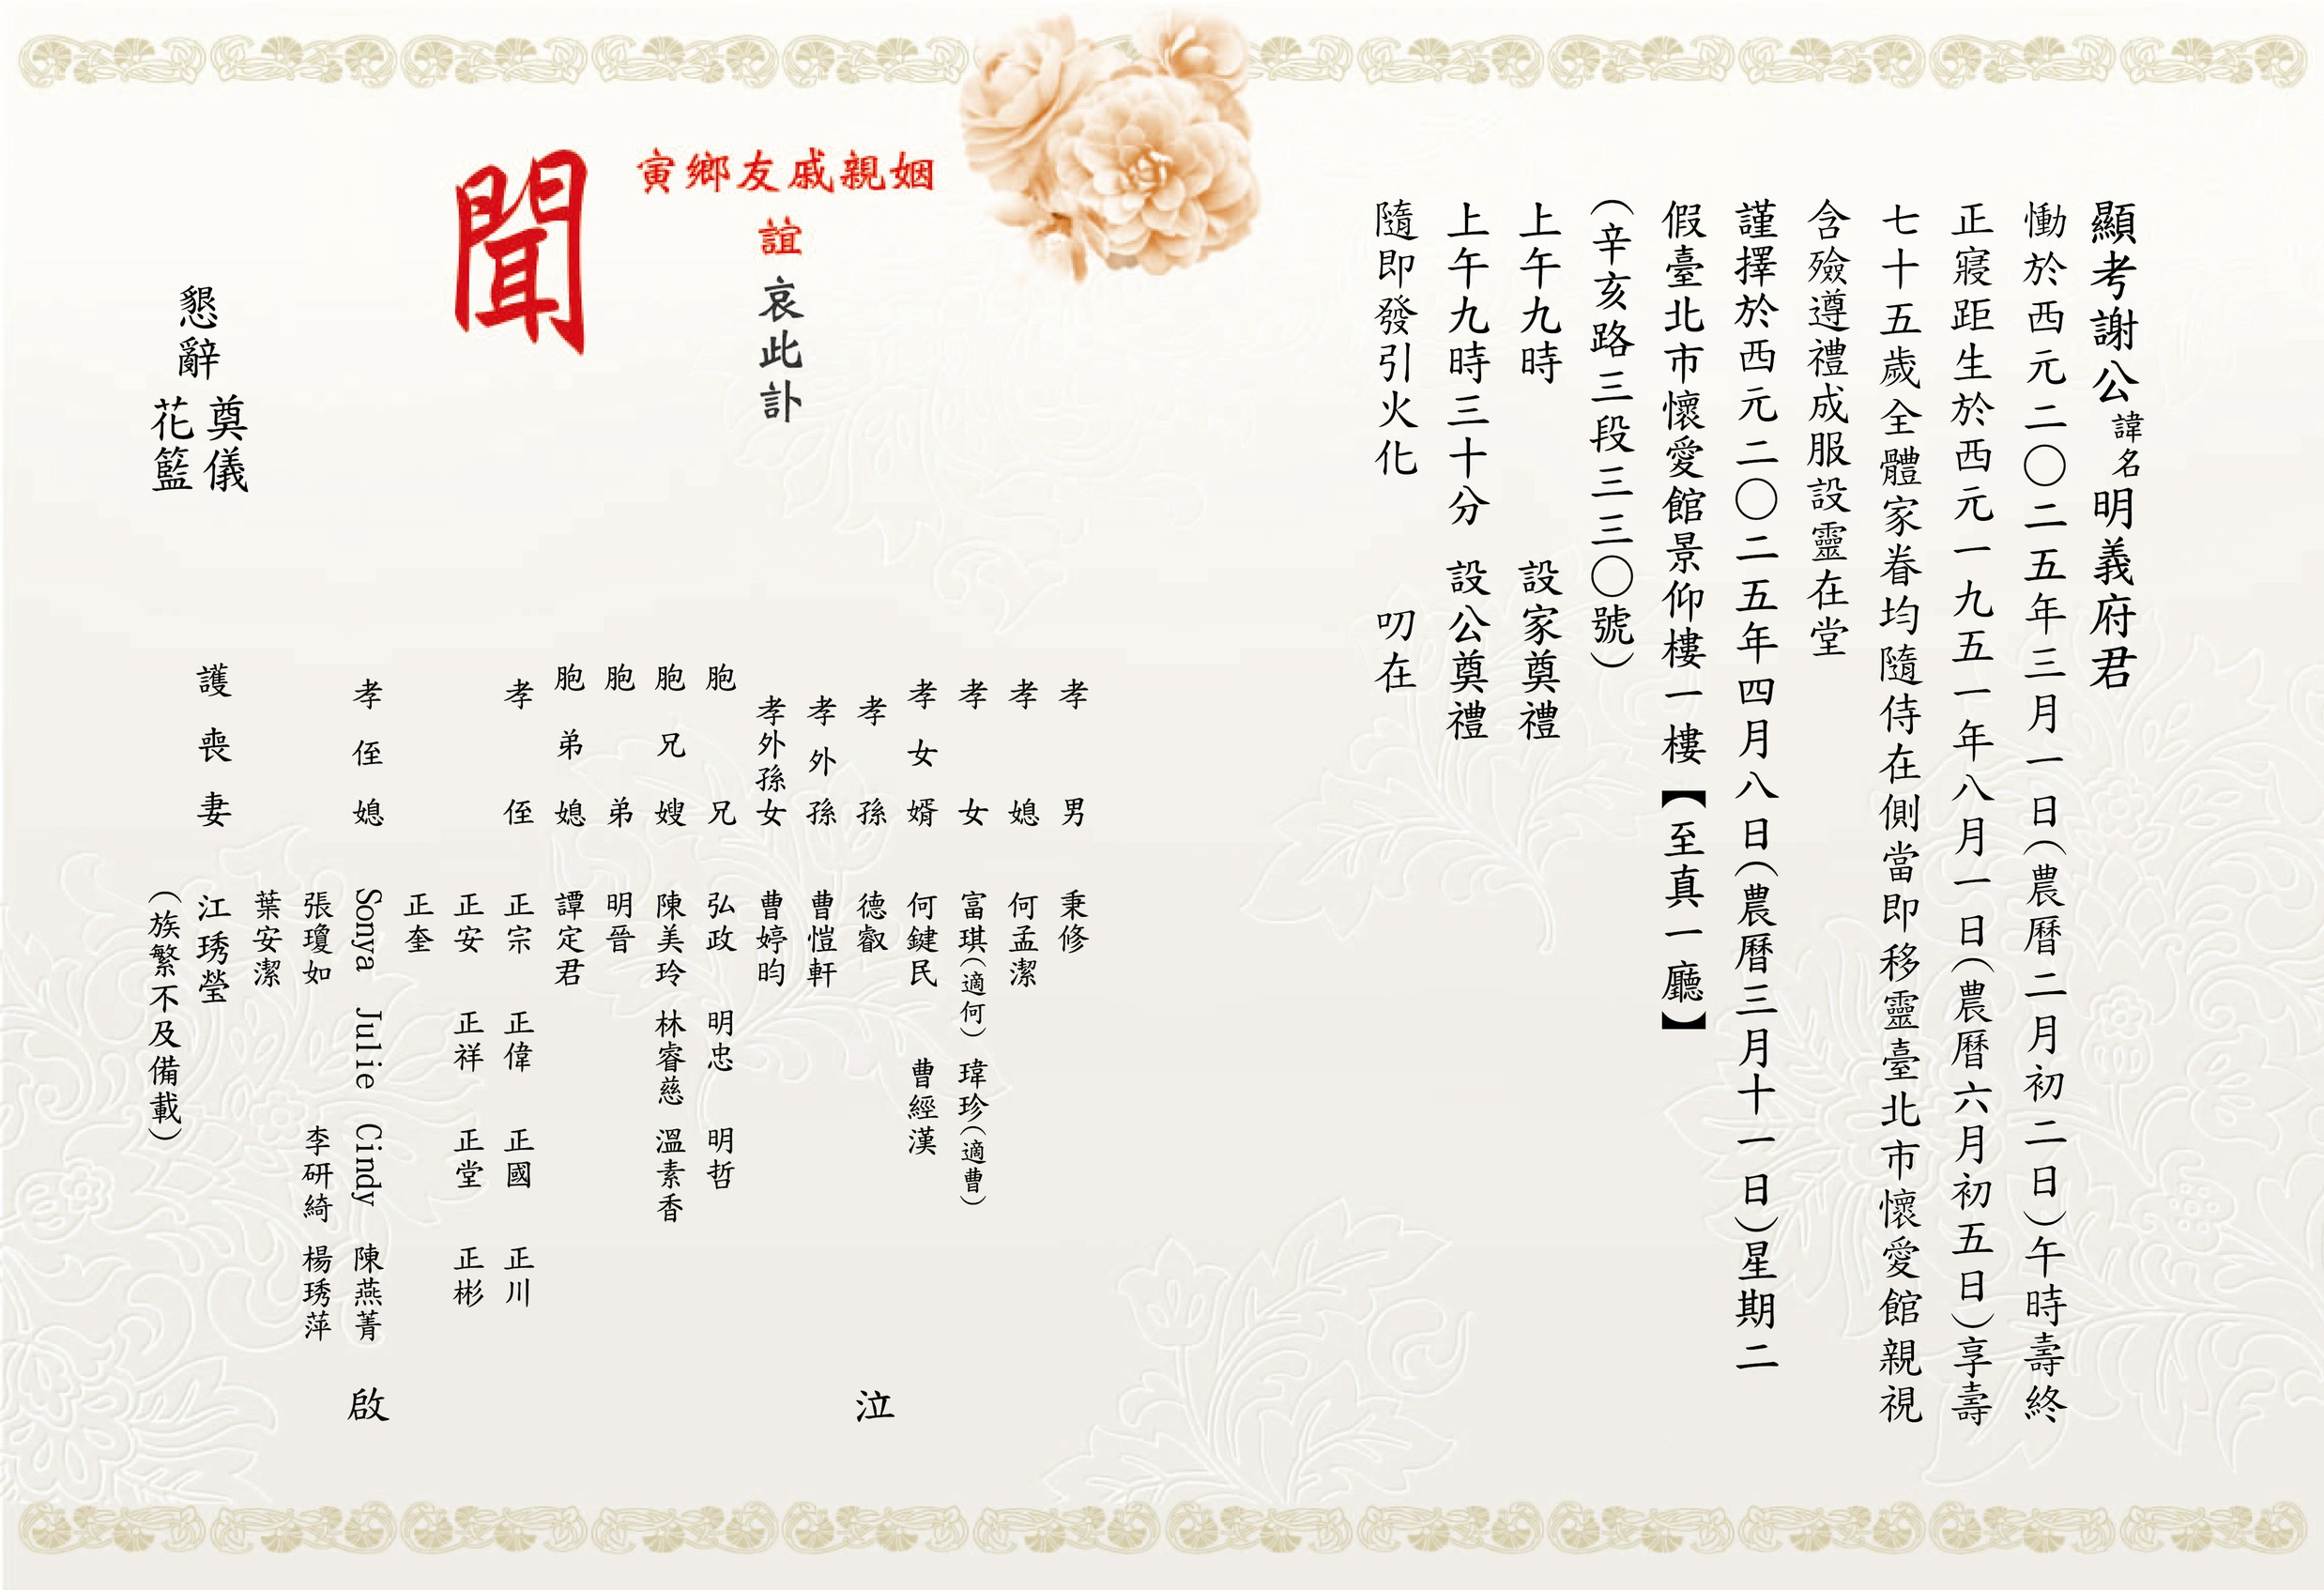 顯考謝公諱名明義府君
慟於西元二〇二五年三月一日(農曆二月初二日)午時壽終
正寢距生於西元一九五一年八月一日(農曆六月初五日)享壽
七十五歲全體家眷均隨侍在側當即移靈臺北市懷愛館親視
含殮遵禮成服設靈在堂
謹擇於西元二〇二五年四月八日(農曆三月十一日)星期二
假臺北市懷愛館景仰樓一樓【至真一廳】
(辛亥路三段三三〇號)
上午九時 設家奠禮
上午九時三十分 設公奠禮
隨即發引火化 叨在
姻親戚友鄉寅
誼
哀此訃
聞
懇辭 奠儀
花籃
孝男 秉修
孝媳 何孟潔
孝女 富琪(適何) 瑋珍(適曹)
孝女婿 何鍵民 曹經漢
孝孫 德叡
孝外孫 曹愷軒
孝外孫女 曹婷昀
胞兄 弘政 明忠 明哲
胞兄嫂 陳美玲 林睿慈 溫素香
胞弟 明晉
胞弟媳 譚定君
孝侄 正宗 正偉 正國 正川
正安 正祥 正堂 正彬
正奎
孝侄媳 Sonya Julie Cindy 陳燕菁
張瓊如 李研綺 楊琇萍
葉安潔
護喪妻 江琇瑩
(族繁不及備載)
泣
啟